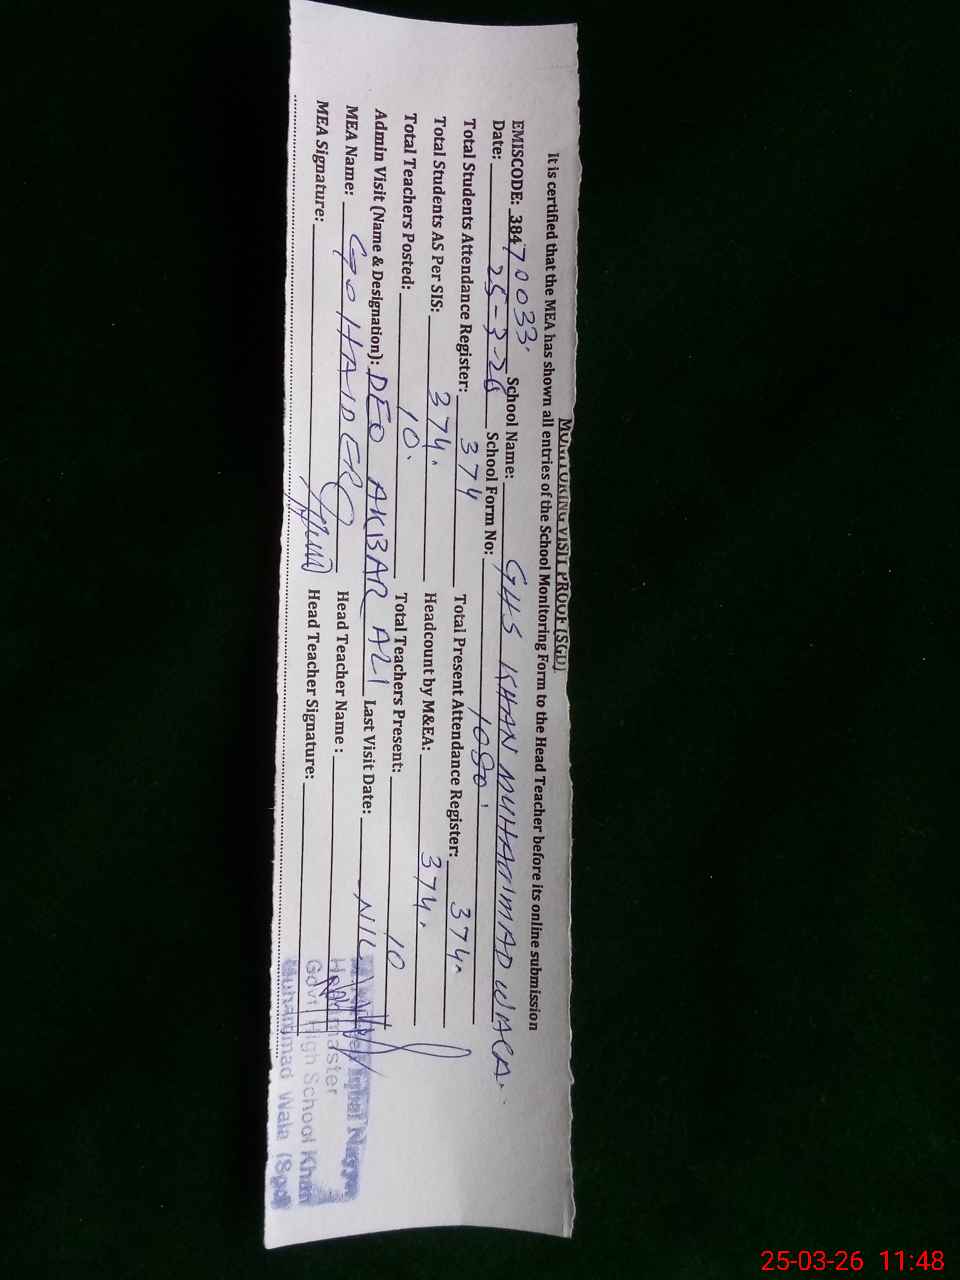 MONITORING VISIT PROOF (SGD)
It is certified that the MEA has shown all entries of the School Monitoring Form to the Head Teacher before its online submission
EMISCODE: 38470033. School Name: GHS KHAN MUHAMMAD WALA.
Date: 25-3-26 School Form No: 1080.
Total Students Attendance Register: 374 Total Present Attendance Register: 374.
Total Students AS Per SIS: 374. Headcount by M&EA: 374.
Total Teachers Posted: 10. Total Teachers Present: 10
Admin Visit (Name & Designation): DEO AKBAR ALI Last Visit Date: NIL
MEA Name: HAIDER Head Teacher Name :
MEA Signature: Head Teacher Signature:
Iqbal
Headmaster
Govt High School Khan
Muhammad Wala (Sgd)
25-03-26 11:48